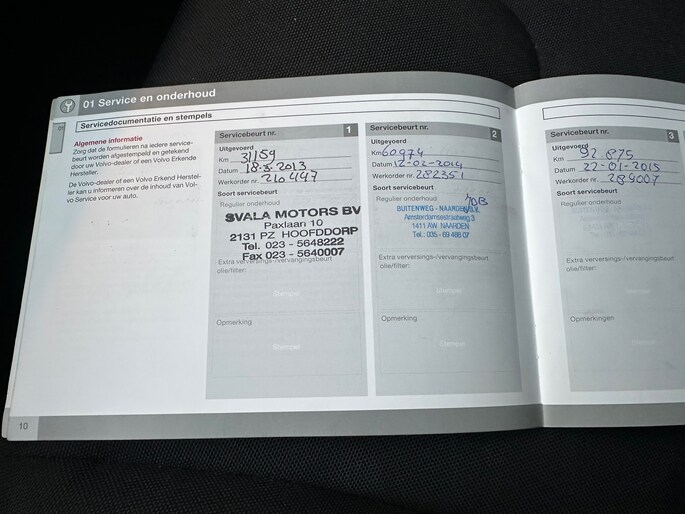 01 Service en onderhoud
01
Servicedocumentatie en stempels
Algemene informatie
Zorg dat de formulieren na iedere service-
beurt worden afgestempeld en getekend
door uw Volvo-dealer of een Volvo Erkende
Hersteller.
De Volvo-dealer of een Volvo Erkend Herstel-
ler kan u informeren over de inhoud van Vol-
vo Service voor uw auto.
Servicebeurt nr. 1
Uitgevoerd
Km 31159
Datum 18-3-2013
Werkorder nr. 210447
Soort servicebeurt
Regulier onderhoud
SVALA MOTORS BV
Paxlaan 10
2131 PZ HOOFDDORP
Tel. 023 - 5648222
Fax 023 - 5640007
Extra verversings-/vervangingsbeurt
olie/filter:
Stempel
Opmerking
Stempel
Servicebeurt nr. 2
Uitgevoerd
Km 60974
Datum 12-02-2014
Werkorder nr. 282351
Soort servicebeurt
Regulier onderhoud
BUITENWEG - NAARDEN B.V.
Amsterdamsestraatweg 3
1411 AW NAARDEN
Tel.: 035 - 69 486 07
Extra verversings-/vervangingsbeurt
olie/filter:
Stempel
Opmerking
Stempel
Servicebeurt nr. 3
Uitgevoerd
Km 92.875
Datum 22-01-2015
Werkorder nr. 289007
Soort servicebeurt
Regulier onderhoud
Extra verversings-/vervangingsbeurt
olie/filter:
Stempel
Opmerkingen
Stempel
10